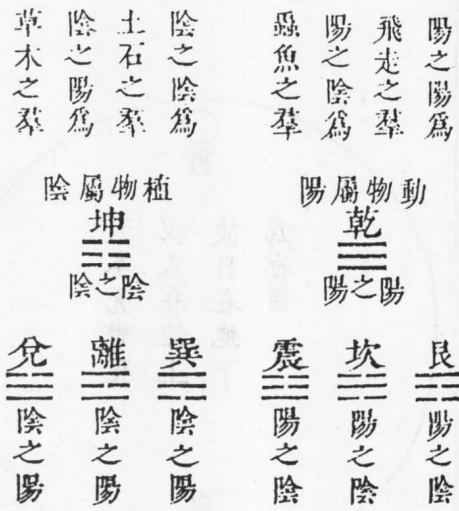 陽之陽爲
飛走之羣
陽之陰爲
蟲魚之羣
陰之陰爲
土石之羣
陰之陽爲
草木之羣
動物屬陽
乾
陽之陽
植物屬陰
坤
陰之陰
艮
陽之陰
坎
陽之陰
震
陽之陰
巽
陰之陽
離
陰之陽
兌
陰之陽